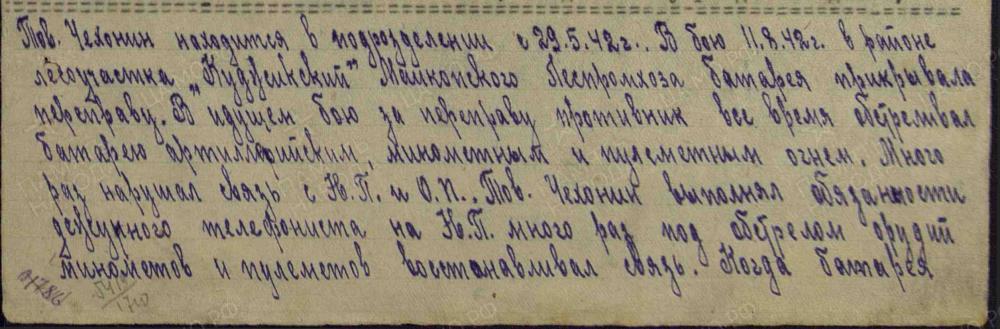 Тов. Чехонин находится в подрозделении с 29.5.42г.. В бою 11.8.42г. в районе
лесоучастка "Кудусикский" Майкопского Леспромхоза батарея прикрывала
переправу. В идущем бою за переправу противник все время обстреливал
батарею артиллерийским, минометным и пулеметным огнем. Много
раз нарушал связь с Н.П. и О.П.. Тов. Чехонин выполнял обязанности
дежурного телефониста на Н.П. много раз под обстрелом орудий
минометов и пулеметов восстанавливал связь. Когда батарея